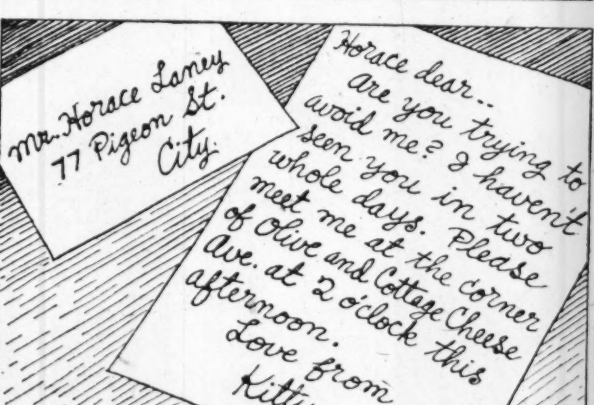 Mr. Horace Laney
77 Pigeon St.
City.
Horace dear--
are you trying to
avoid me? I haven't
seen you in two
whole days. Please
meet me at the corner
of Olive and Cottage Cheese
Ave. at 2 o'clock this
afternoon.
Love from
Kitty